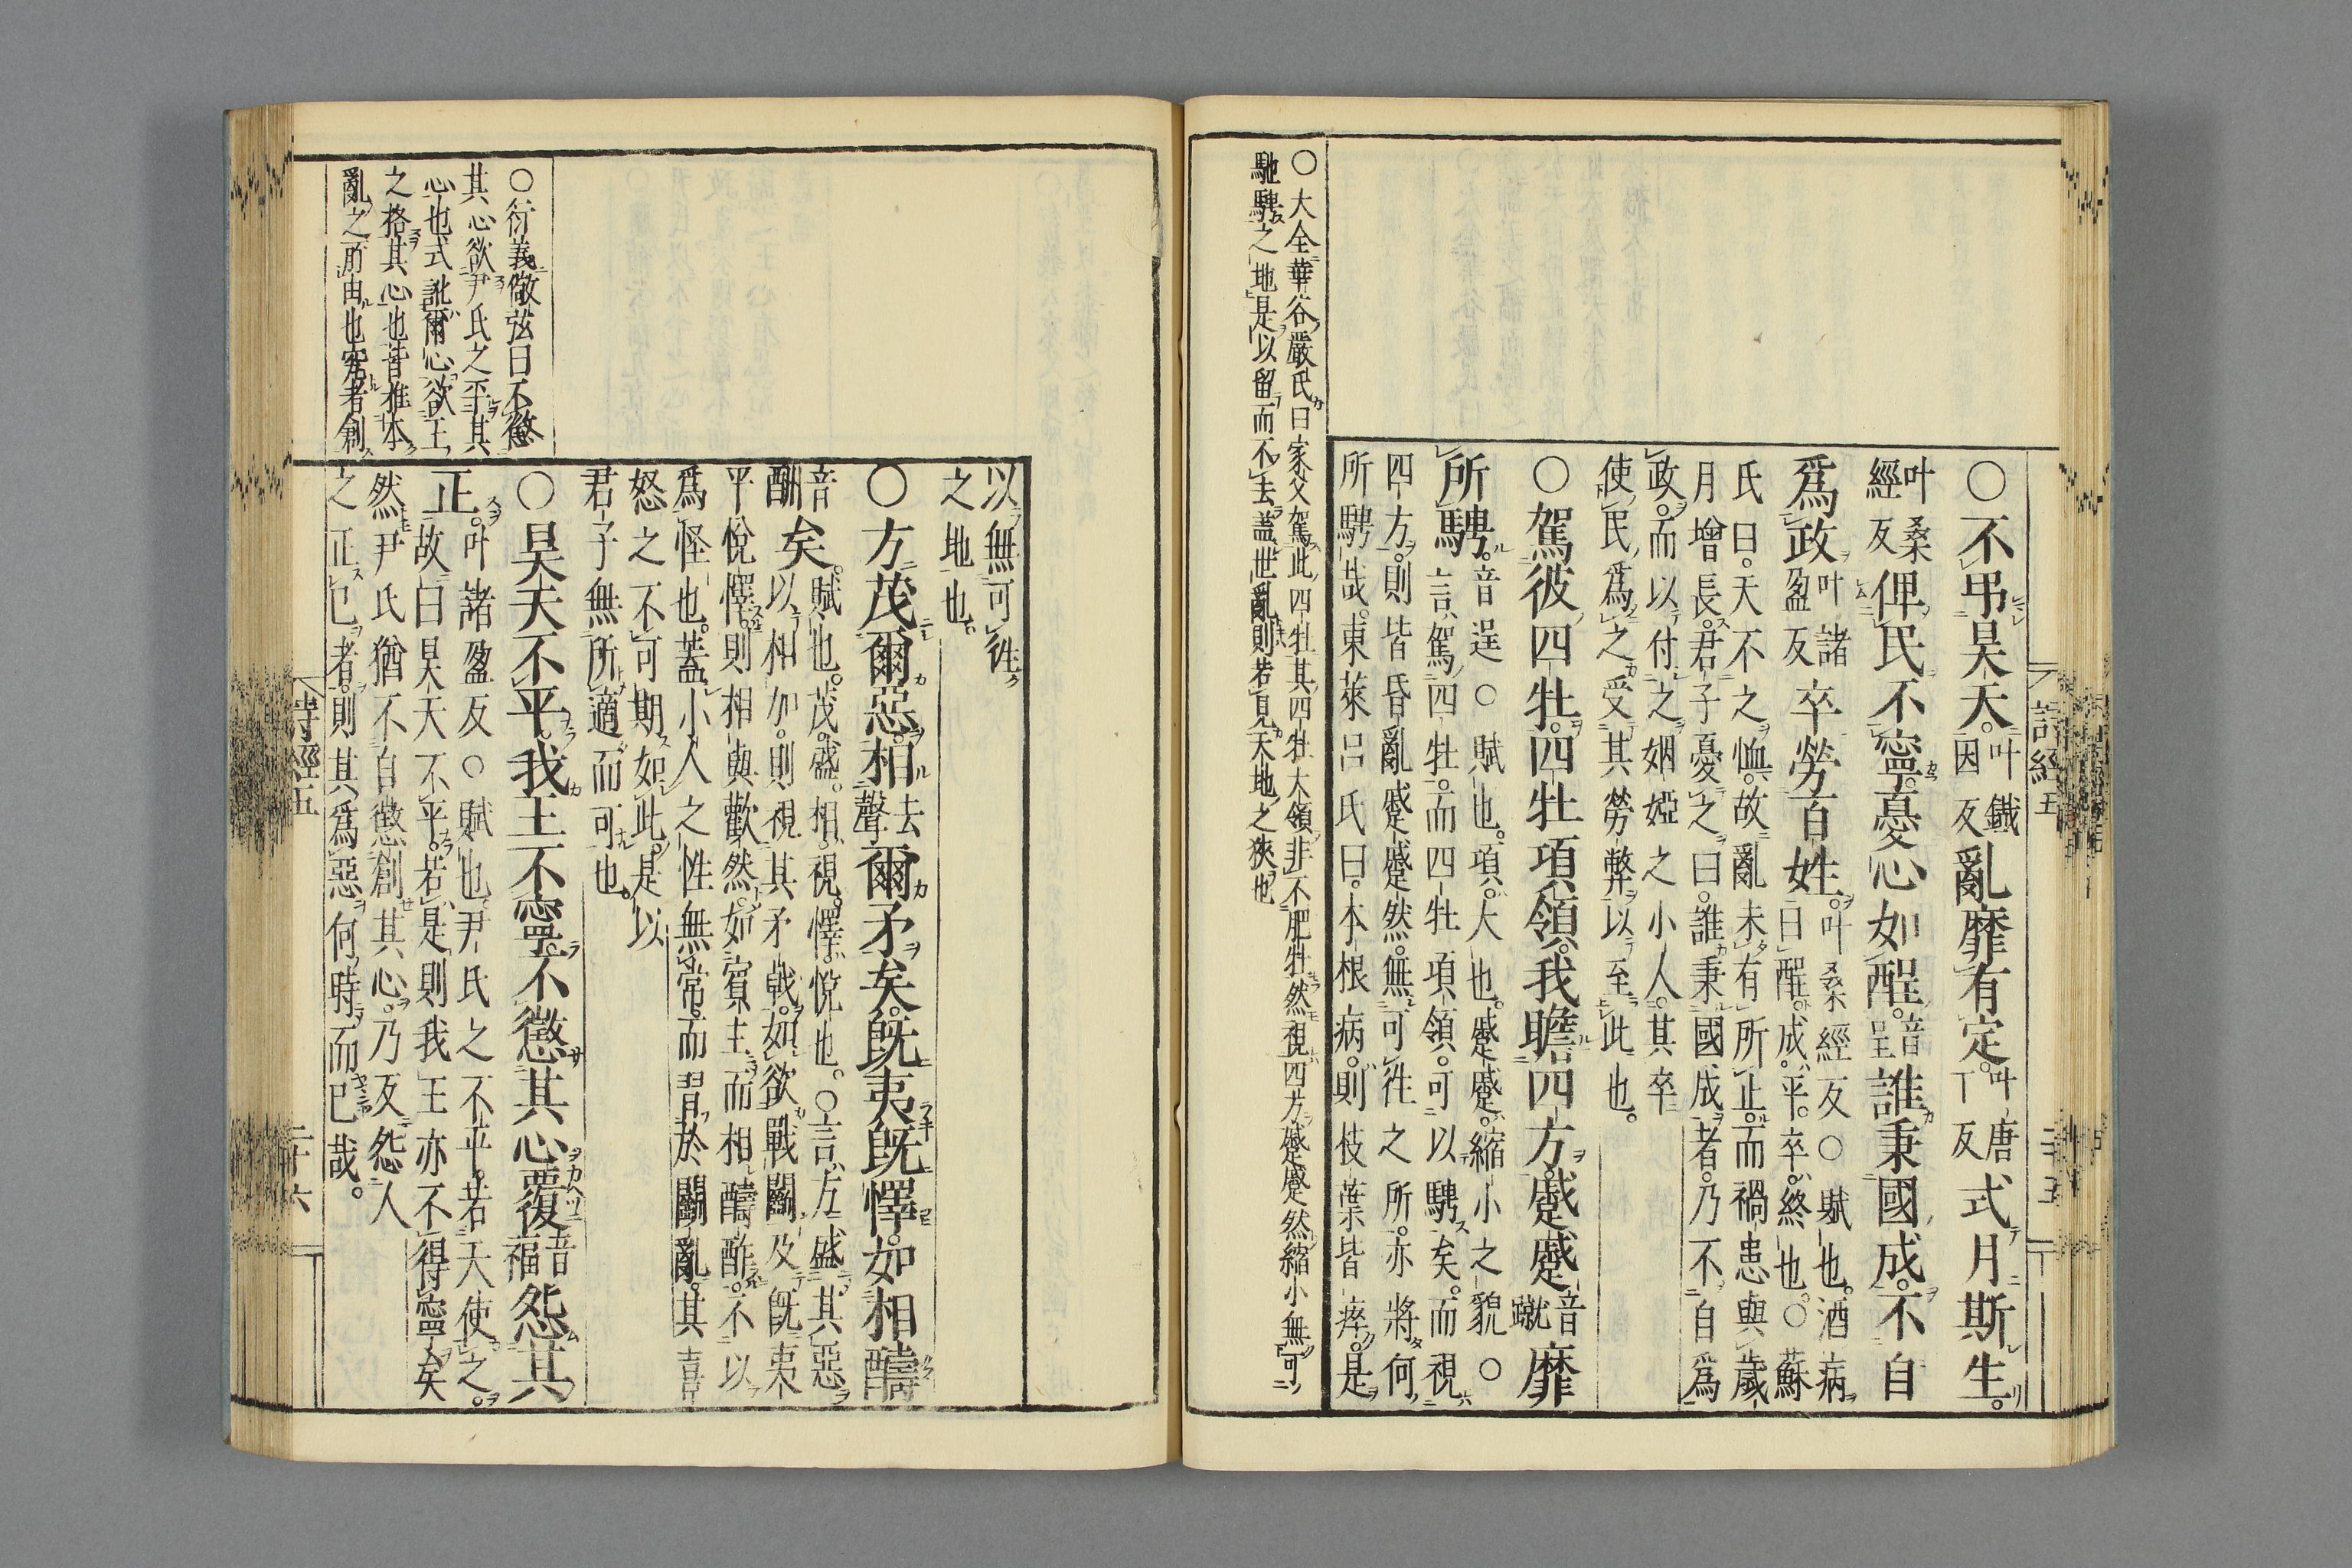 ○不弔昊天。叶鐵因反亂靡有定。叶唐丁反式月斯生。
叶桑經反俾民不寧。憂心如酲。音呈誰秉國成。不自
爲政叶諸盈反卒勞百姓。叶桑經反○賦也。酒病
曰酲。成。平。卒。終也。○蘇
氏曰。天不之恤。故亂未有所止。而禍患與歲
月增長。君子憂之曰。誰秉國成者。乃不自爲
政。而以付之姻婭之小人。其卒
使民爲之受其勞弊。以至此也。
○駕彼四牡。四牡項領。我瞻四方。蹙蹙音蹴靡
所騁。音逞○賦也。項。大也。蹙蹙。縮小之貌○
言。駕四牡。而四牡項領。可以騁矣。而視
四方。則皆昏亂蹙蹙然。無可往之所。亦將何
所騁哉。東萊呂氏曰。本根病。則枝葉皆瘁。是
○大全華谷嚴氏曰家父駕此四牡其四牡大領非不肥壯然視四方蹙蹙然縮小無可
馳騁之地是以留而不去蓋世亂則若見天地之狹也
詩經五
二十五
以無可往
之地也
○方茂爾惡。相去聲爾矛矣。旣夷旣懌。如相醻
音酬矣。賦也。茂。盛。相。視。懌。悅也。○言。方盛其惡
以相加。則視其矛戟。如欲戰鬭。及旣夷
平悅懌。則相與歡然。如賓主。而相醻酢。不以
爲怪也。蓋小人之性無常。而習於鬭亂。其喜
怒之不可期如此。是以
君子無所適而可也。
○昊天不平。我王不寧。不懲其心。覆音福怨其
正。叶諸盈反○賦也。尹氏之不平。若天使之。
故曰昊天不平。若是則我王亦不得寧矣
然尹氏猶不自懲創其心。乃反怨人
之正已者。則其爲惡何時而已哉。
○衍義儆弦曰不懲
其心欲尹氏之平其
心也式訛爾心欲王
之格其心也昔推本
亂之所由也究者創
詩經五
二十六